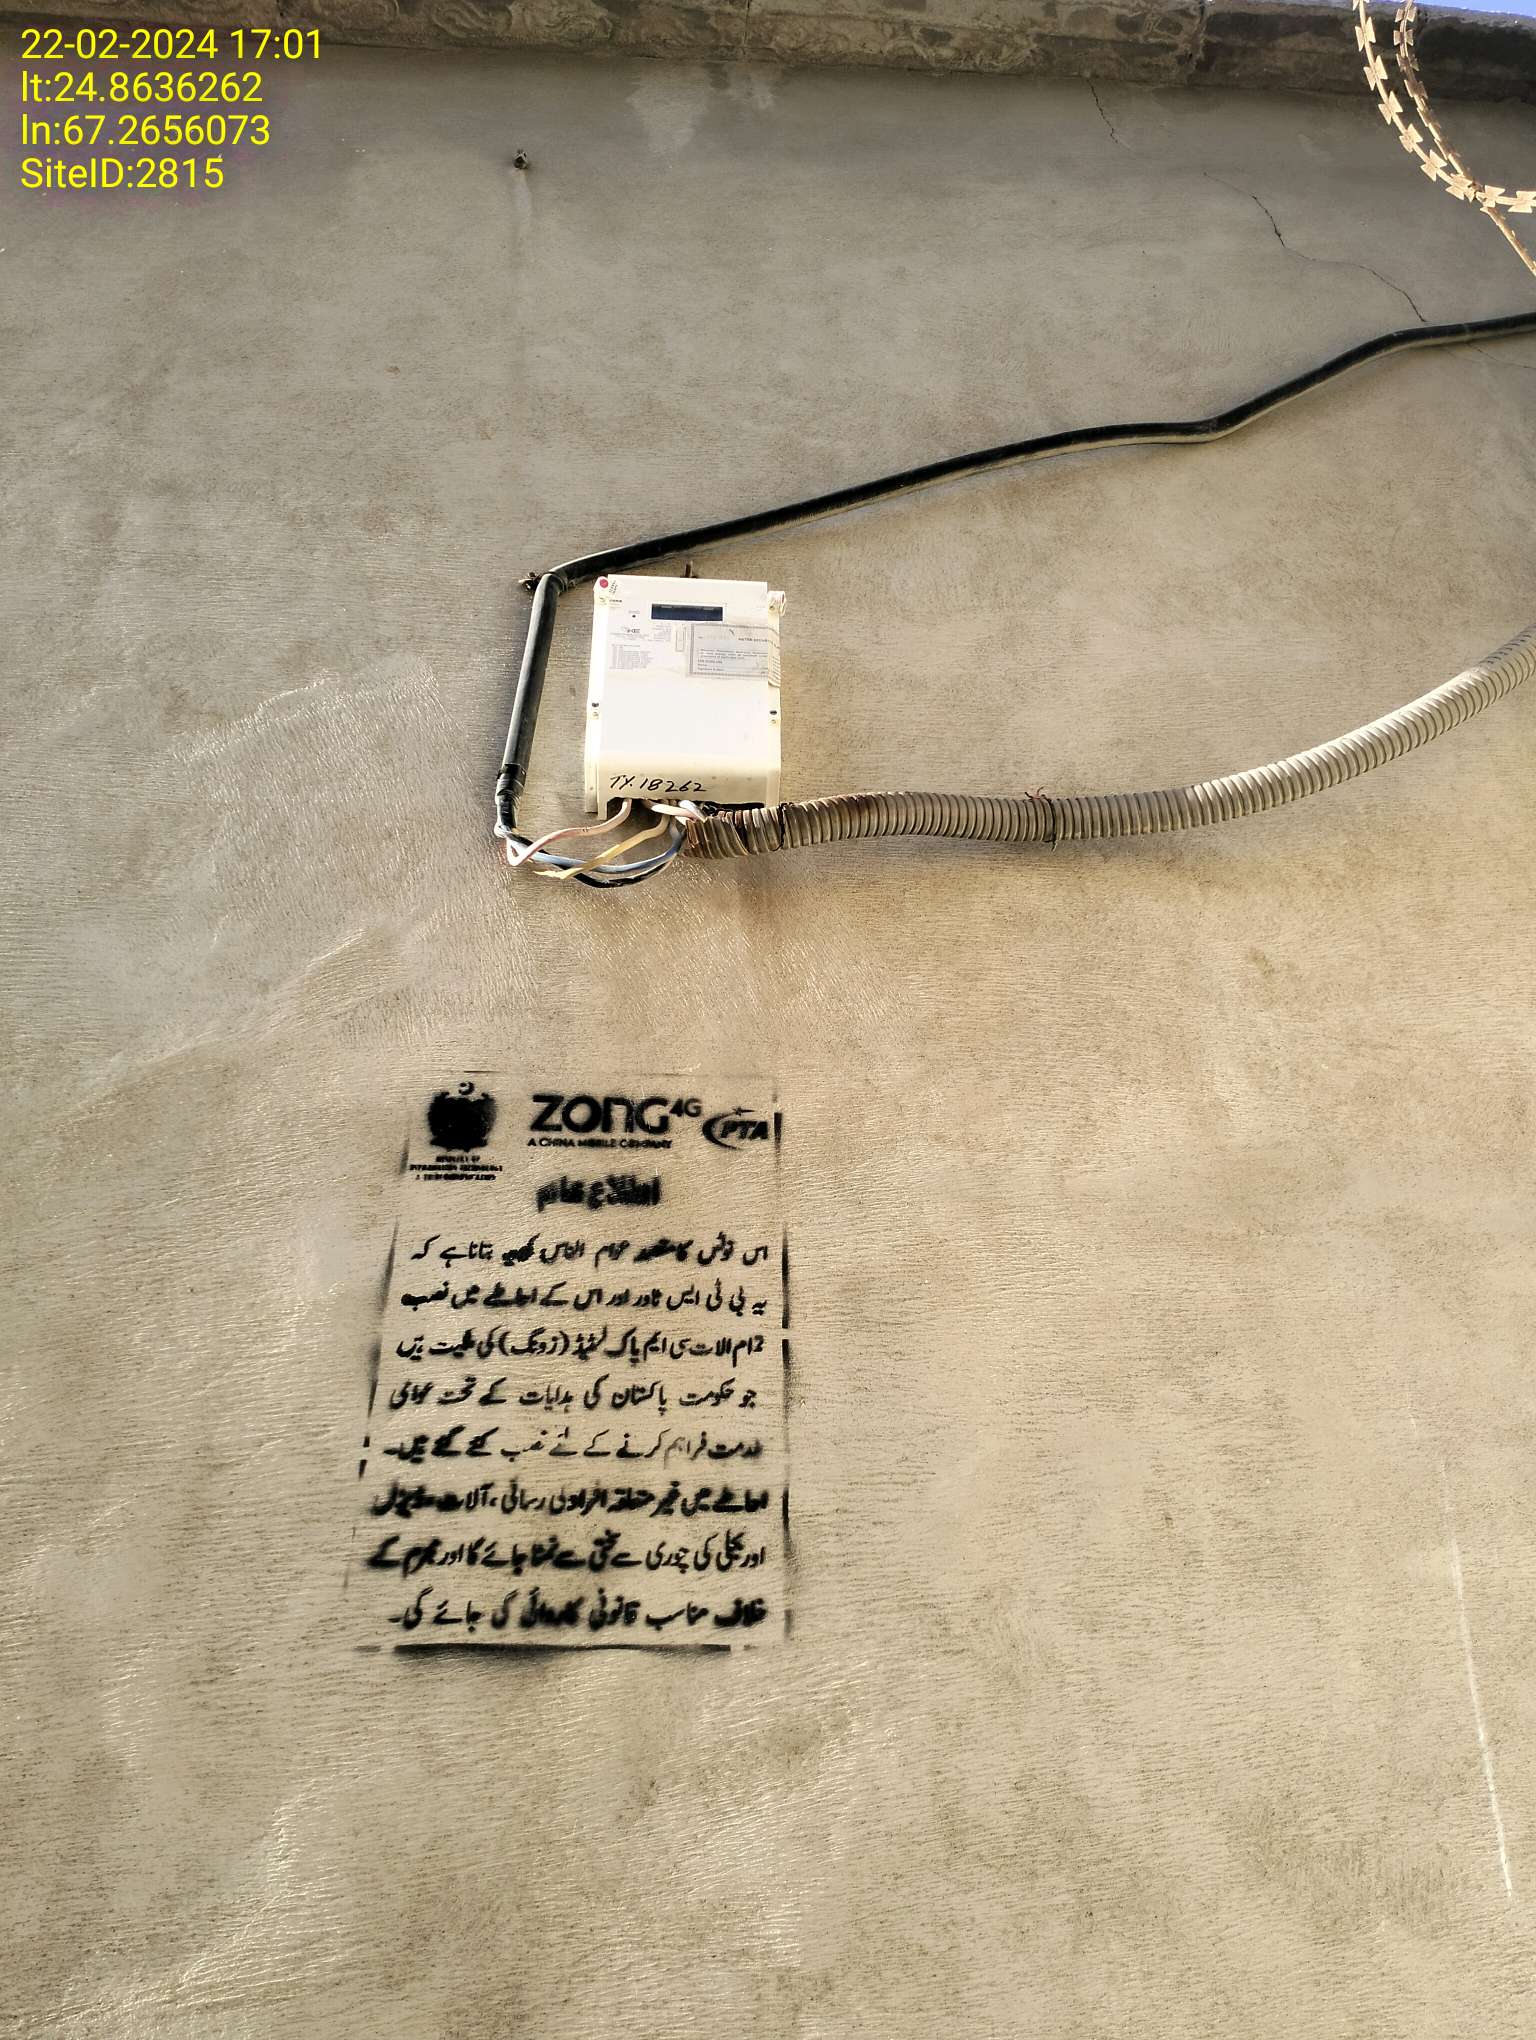 22-02-2024 17:01
lt:24.8636262
ln:67.2656073
SiteID:2815
TY.18262
ZONG 4G
PTA
A CHINA MOBILE COMPANY
MINISTRY OF
INFORMATION TECHNOLOGY
& TELECOMMUNICATION
اطلاع عام
اس نوٹس کا مقصد عوام الناس کو یہ بتانا ہے کہ
یہ بی ٹی ایس ٹاور اور اس کے احاطے میں نصب
تمام الات سی ایم پاک لمیٹڈ (زونگ) کی ملکیت ہیں
جو حکومت پاکستان کی ہدایات کے تحت عوامی
خدمت فراہم کرنے کے لئے نصب کئے گئے ہیں۔
احاطے میں غیر متعلقہ افراد کی رسائی، آلات، ڈیزل
اور بجلی کی چوری سے سختی سے نمٹا جائے گا اور مجرم کے
خلاف مناسب قانونی کاروائی کی جائے گی۔